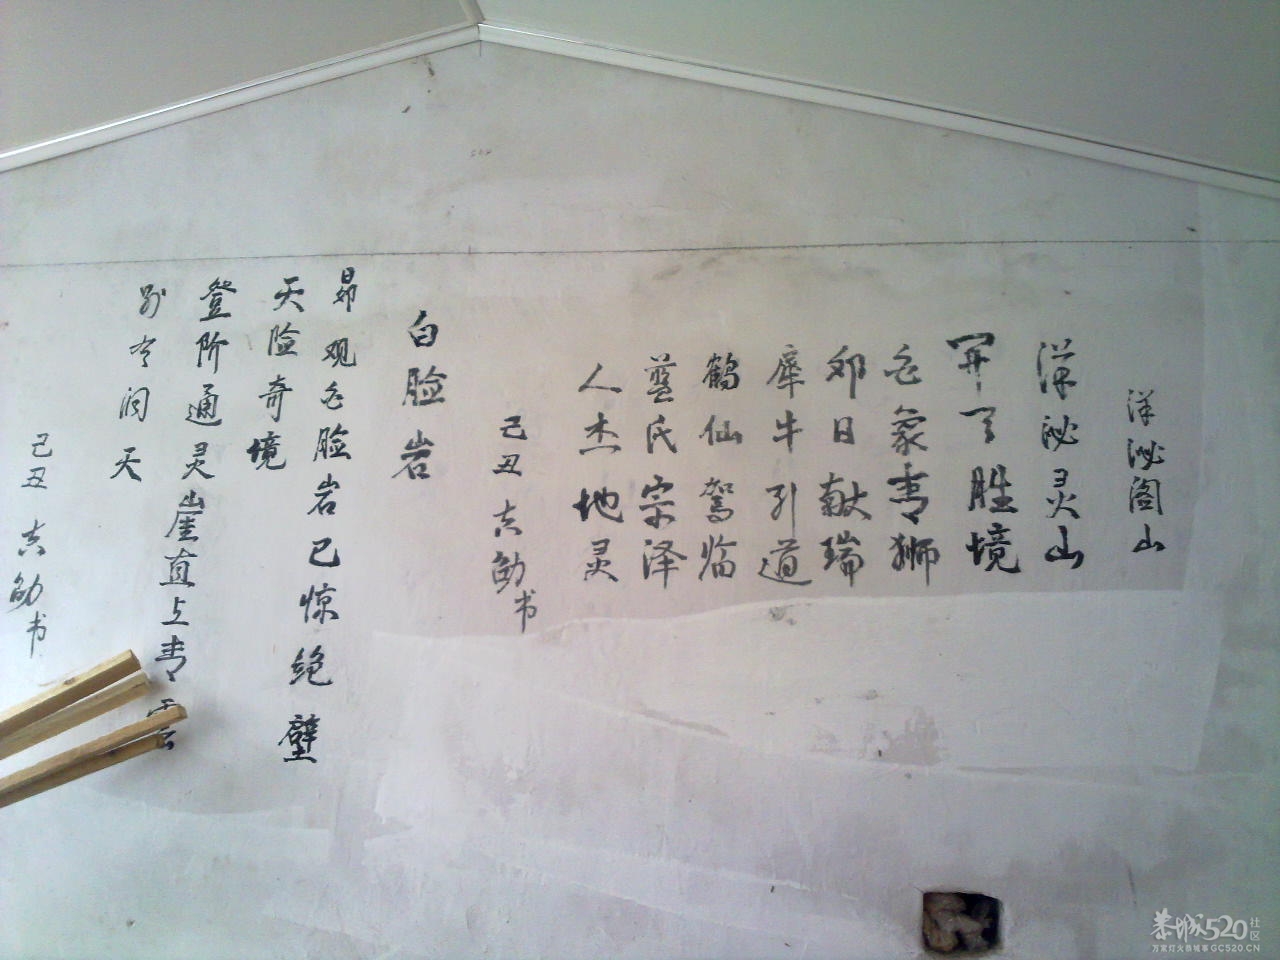 洋泌阁山
洋泌灵山
开了胜境
白象青狮
邜日献瑞
犀牛引道
鹤仙驾临
蓝氏宗泽
人杰地灵
己丑 志勋书
白脸岩
昴观白脸岩已惊绝壁
天险奇境
登阶通灵崖直上青云
别有洞天
己丑 志勋书
恭城520社区
万家灯火恭城事GC520.CN